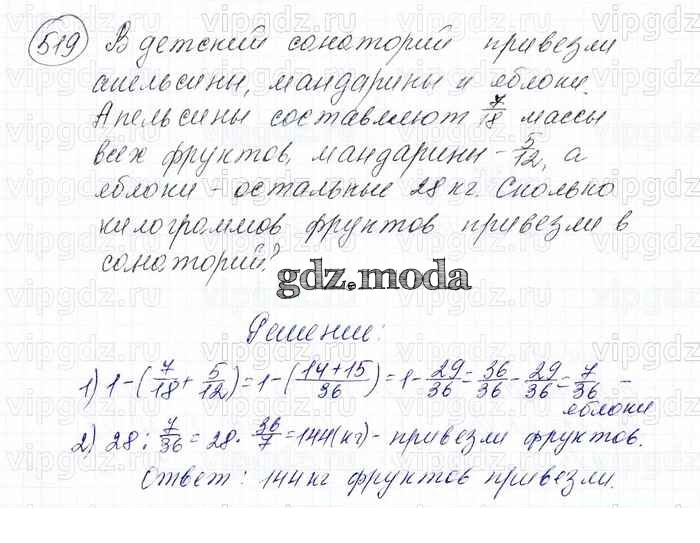 519 В детский санаторий привезли
апельсины, мандарины и яблоки.
Апельсины составляют 7/18 массы
всех фруктов, мандарины - 5/12, а
яблоки - остальные 28 кг. Сколько
килограммов фруктов привезли в
санаторий?
gdz.moda
Решение:
1) 1-(7/18+5/12)=1-(14+15/36)=1-29/36=36/36-29/36=7/36 -
яблоки
2) 28:7/36=28·36/7=144(кг)- привезли фруктов.
Ответ: 144 кг фруктов привезли.